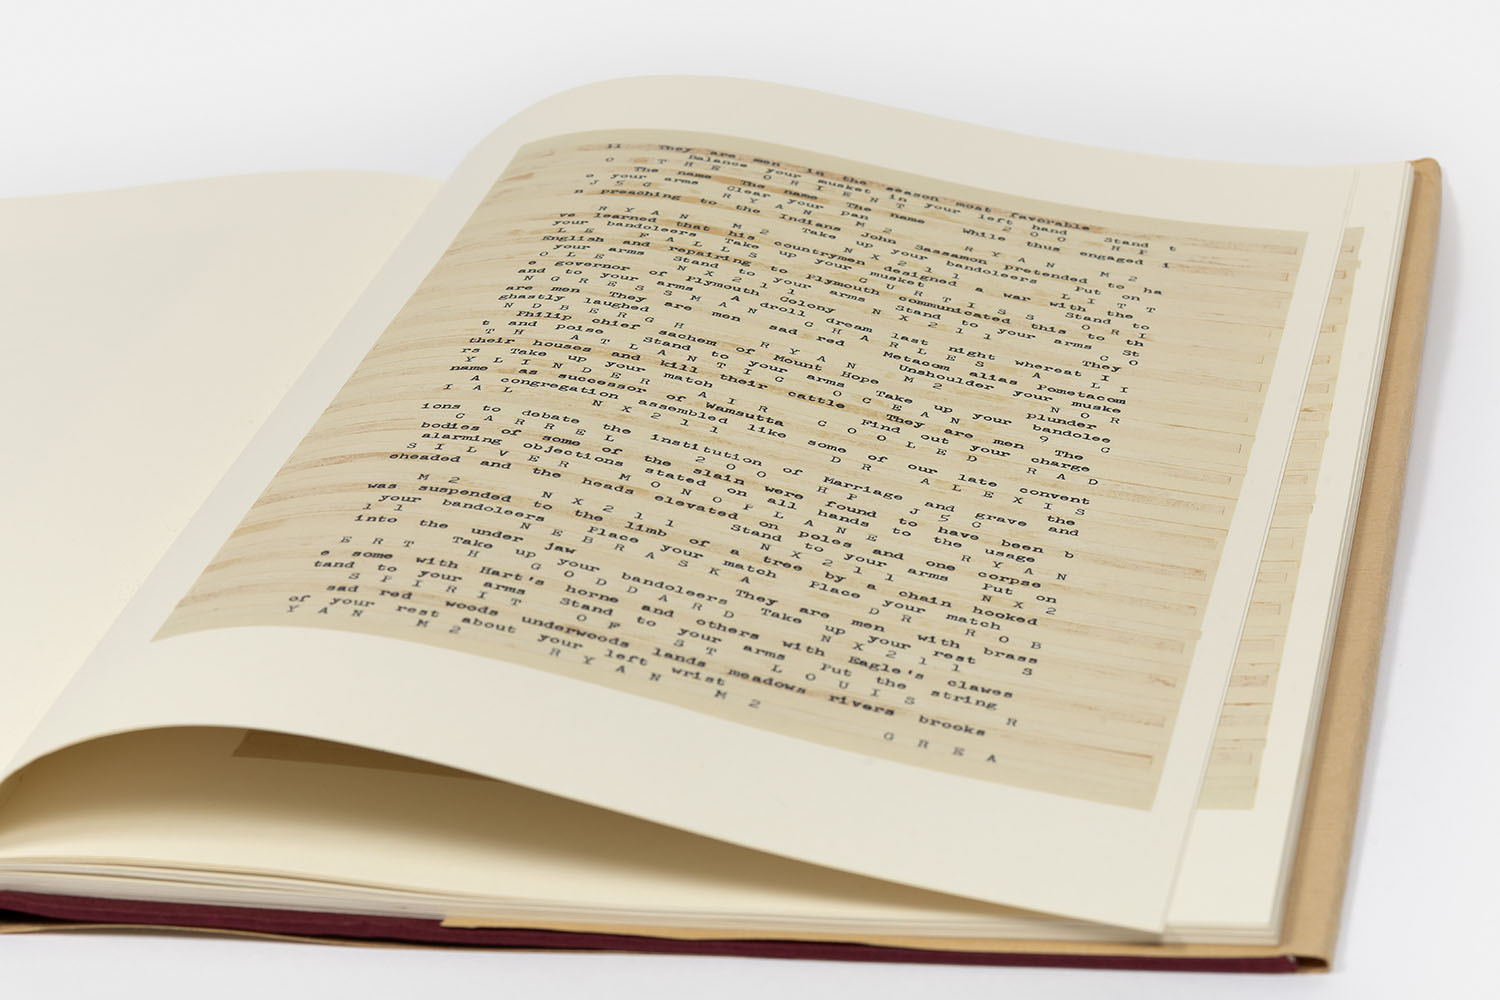 ll   They are men in the season most favorable
Balance your musket in your left hand   Stand t
O   T H E   O R I E N T   2 0 0   H P
The name   The name   The name   While thus engaged i
o your arms   Clear your pan
J 5 C   R Y A N   M 2   R Y A N   M 2
n preaching to the Indians John Sassamon pretended to ha
Take up your bandoleers   Put on
R Y A N   M 2   N X 2 1 1   L I T T
ve learned that his countrymen designed a war with the
your bandoleers   Take up your musket   Stand to
L E   F A L L S   C U R T I S S   O R I
English and repairing to Plymouth communicated this to th
your arms   Stand to your arms   Stand to your arms   St
O L E   N X 2 1 1   N X 2 1 1   C O
e governor of Plymouth Colony   They
and to your arms   A droll dream last night whereat I
N G R E S S M A N   C H A R L E S   A   L I
are men   They are men   sad red   Metacom alias Pometacom
ghastly laughed   Unshoulder your muske
N D B E R G H   R Y A N   M 2   N O R
Philip chief sachem of Mount Hope   plunder
t and poise   Stand to your arms   Take up your bandolee
T H   A T L A N T I C   O C E A N   9   C
their houses and kill their cattle   They are men   The
rs   Take up your match   Find out your charge
Y L I N D E R   A I R   C O O L E D   R A D
name   as successor of Wamsutta
A congregation assembled like some of our late convent
I A L   N X 2 1 1   D R   A L E X I S
ions to debate the institution of Marriage and grave the
C A R R E L   2 0 0   H P   J 5 C
bodies of some of the slain were found to have been b
alarming objections stated on all hands to the usage
S I L V E R   M O N O P L A N E   R Y A N
eheaded and the heads elevated on poles and one corpse
Stand to your arms   Put on
M 2   N X 2 1 1   N X 2 1 1   N X 2
was suspended to the limb of a tree by a chain hooked
your bandoleers   Place your match   Place your match
1 1   N E B R A S K A   D R   R O B
into the under jaw   They are men   with brass
Take up your bandoleers   Take up your rest
E R T   H   G O D D A R D   N X 2 1 1   S
e some with Hart's horne and others with Eagle's clawes
tand to your arms   Stand to your arms   Put the string
S P I R I T   O F   S T   L O U I S   R
sad red   woods   underwoods lands meadows rivers brooks
of your rest about your left wrist
Y A N   M 2   R Y A N   M 2   G R E A